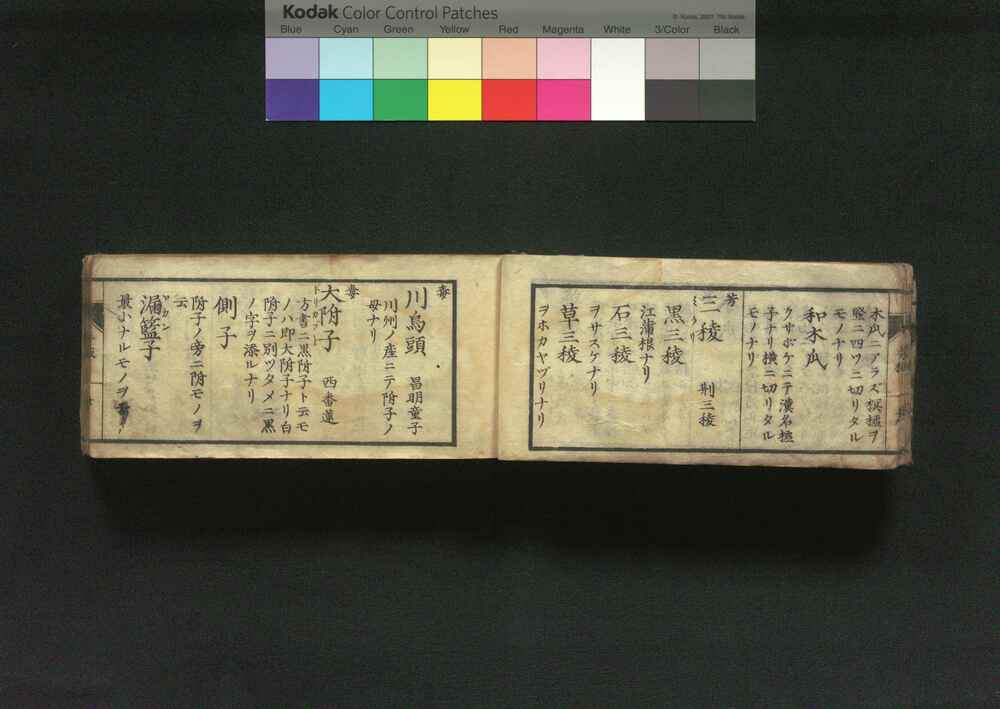 Kodak Color Control Patches
© Kodak, 2007 TM: Kodak
Blue Cyan Green Yellow Red Magenta White 3/Color Black
木瓜ニアラズ榠樝ヲ
竪ニ四ツニ切リタル
モノナリ
和木瓜
クサボケニテ漢名樝
子ナリ横ニ切リタル
モノナリ
芳
三稜 荆三稜
黒三稜
江蒲根ナリ
石三稜
ヲサスゲナリ
草三稜
ヲホカヤヅリナリ
毒
川烏頭 昌明童子
川州ノ産ニテ附子ノ
母ナリ
毒
大附子 西番蓮
トリカブト
方書ニ黒附子ト云モ
ノハ即大附子ナリ白
附子ニ別ツタメニ黒
ノ字ヲ添ルナリ
側子
附子ノ旁ニ附モノヲ
云
漏籃子
最小ナルモノヲ